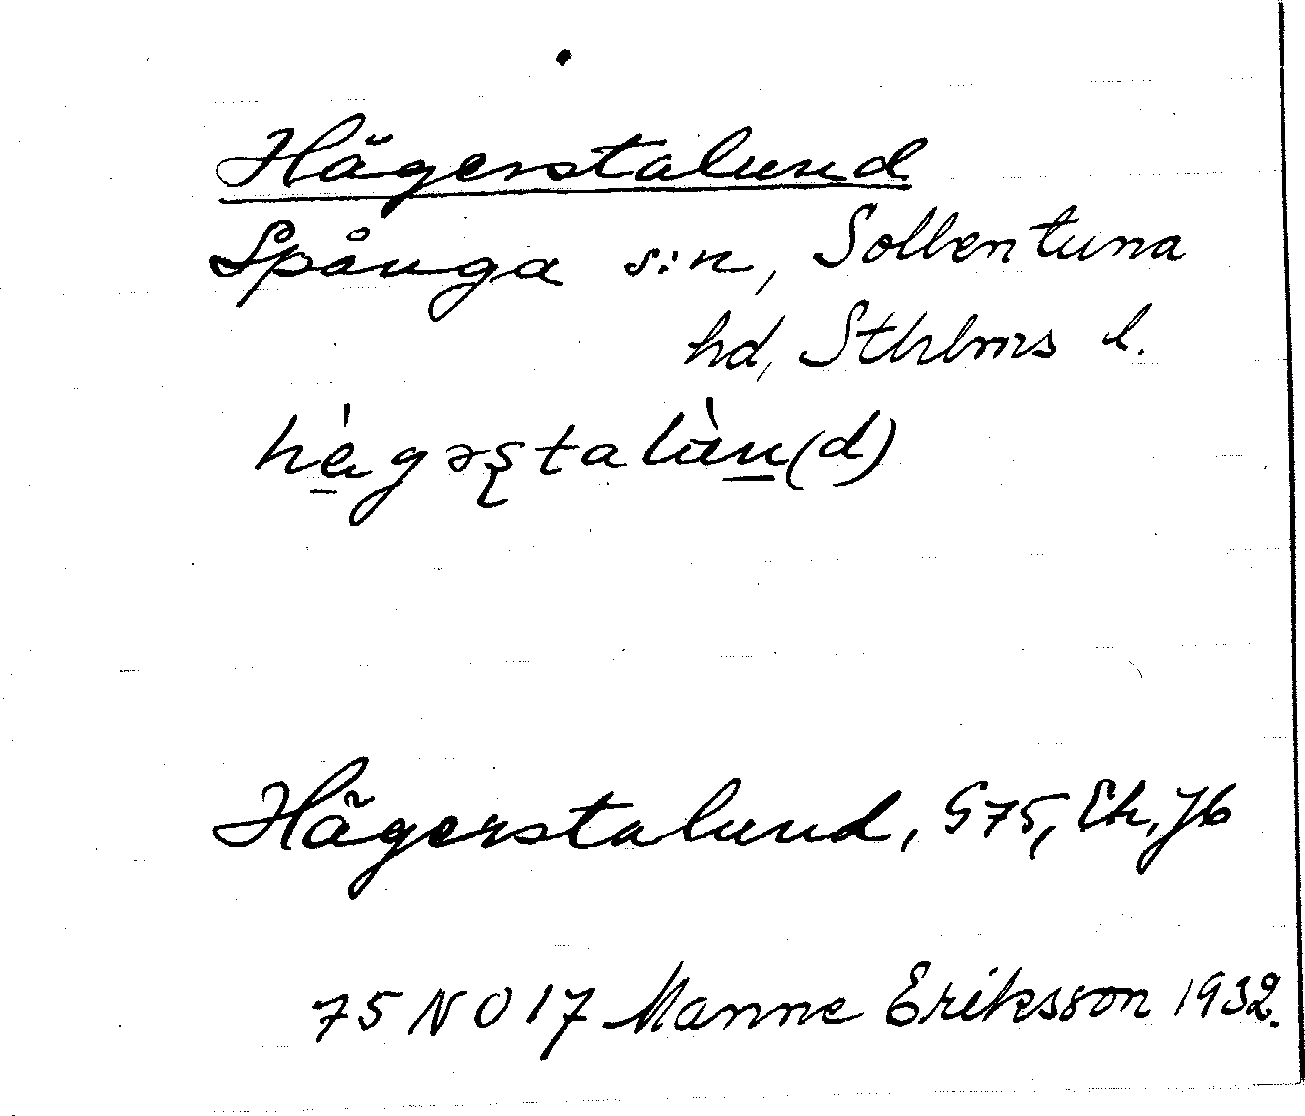 Hägerstalund
Spånga s:n, Sollentuna
hd, Sthlms l.
hä̀gəʂtalùn(d)
Hägerstalund, G75, Ek, Jb
75 NO 17 Manne Eriksson 1932.